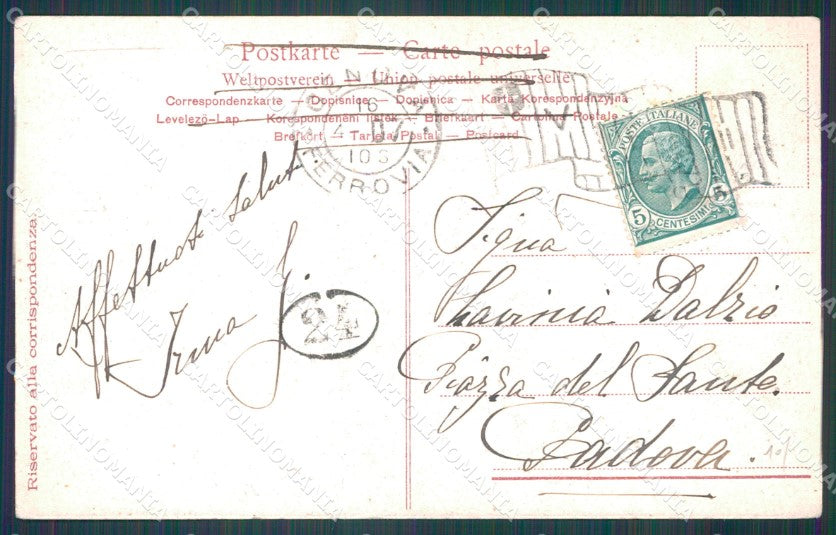 Postkarte — Carte postale
Weltpostverein — Union postale universelle
Correspondenzkarte — Dopisnice — Dopisnica — Karta Korespondenzyjna
Levelező-Lap — Korespondenční lístek — Briefkaart — Cartolina Postale
Brefkort — Tarjeta Postal — Postcard
FERROVIA
16
POSTE ITALIANE
5 CENTESIMI 5
Riservato alla corrispondenza.
Affettuosi saluti
Irma G.
24
Signa
Lavinia Dalzio
Piazza del Santo.
Padova.
CARTOLINOMANIA